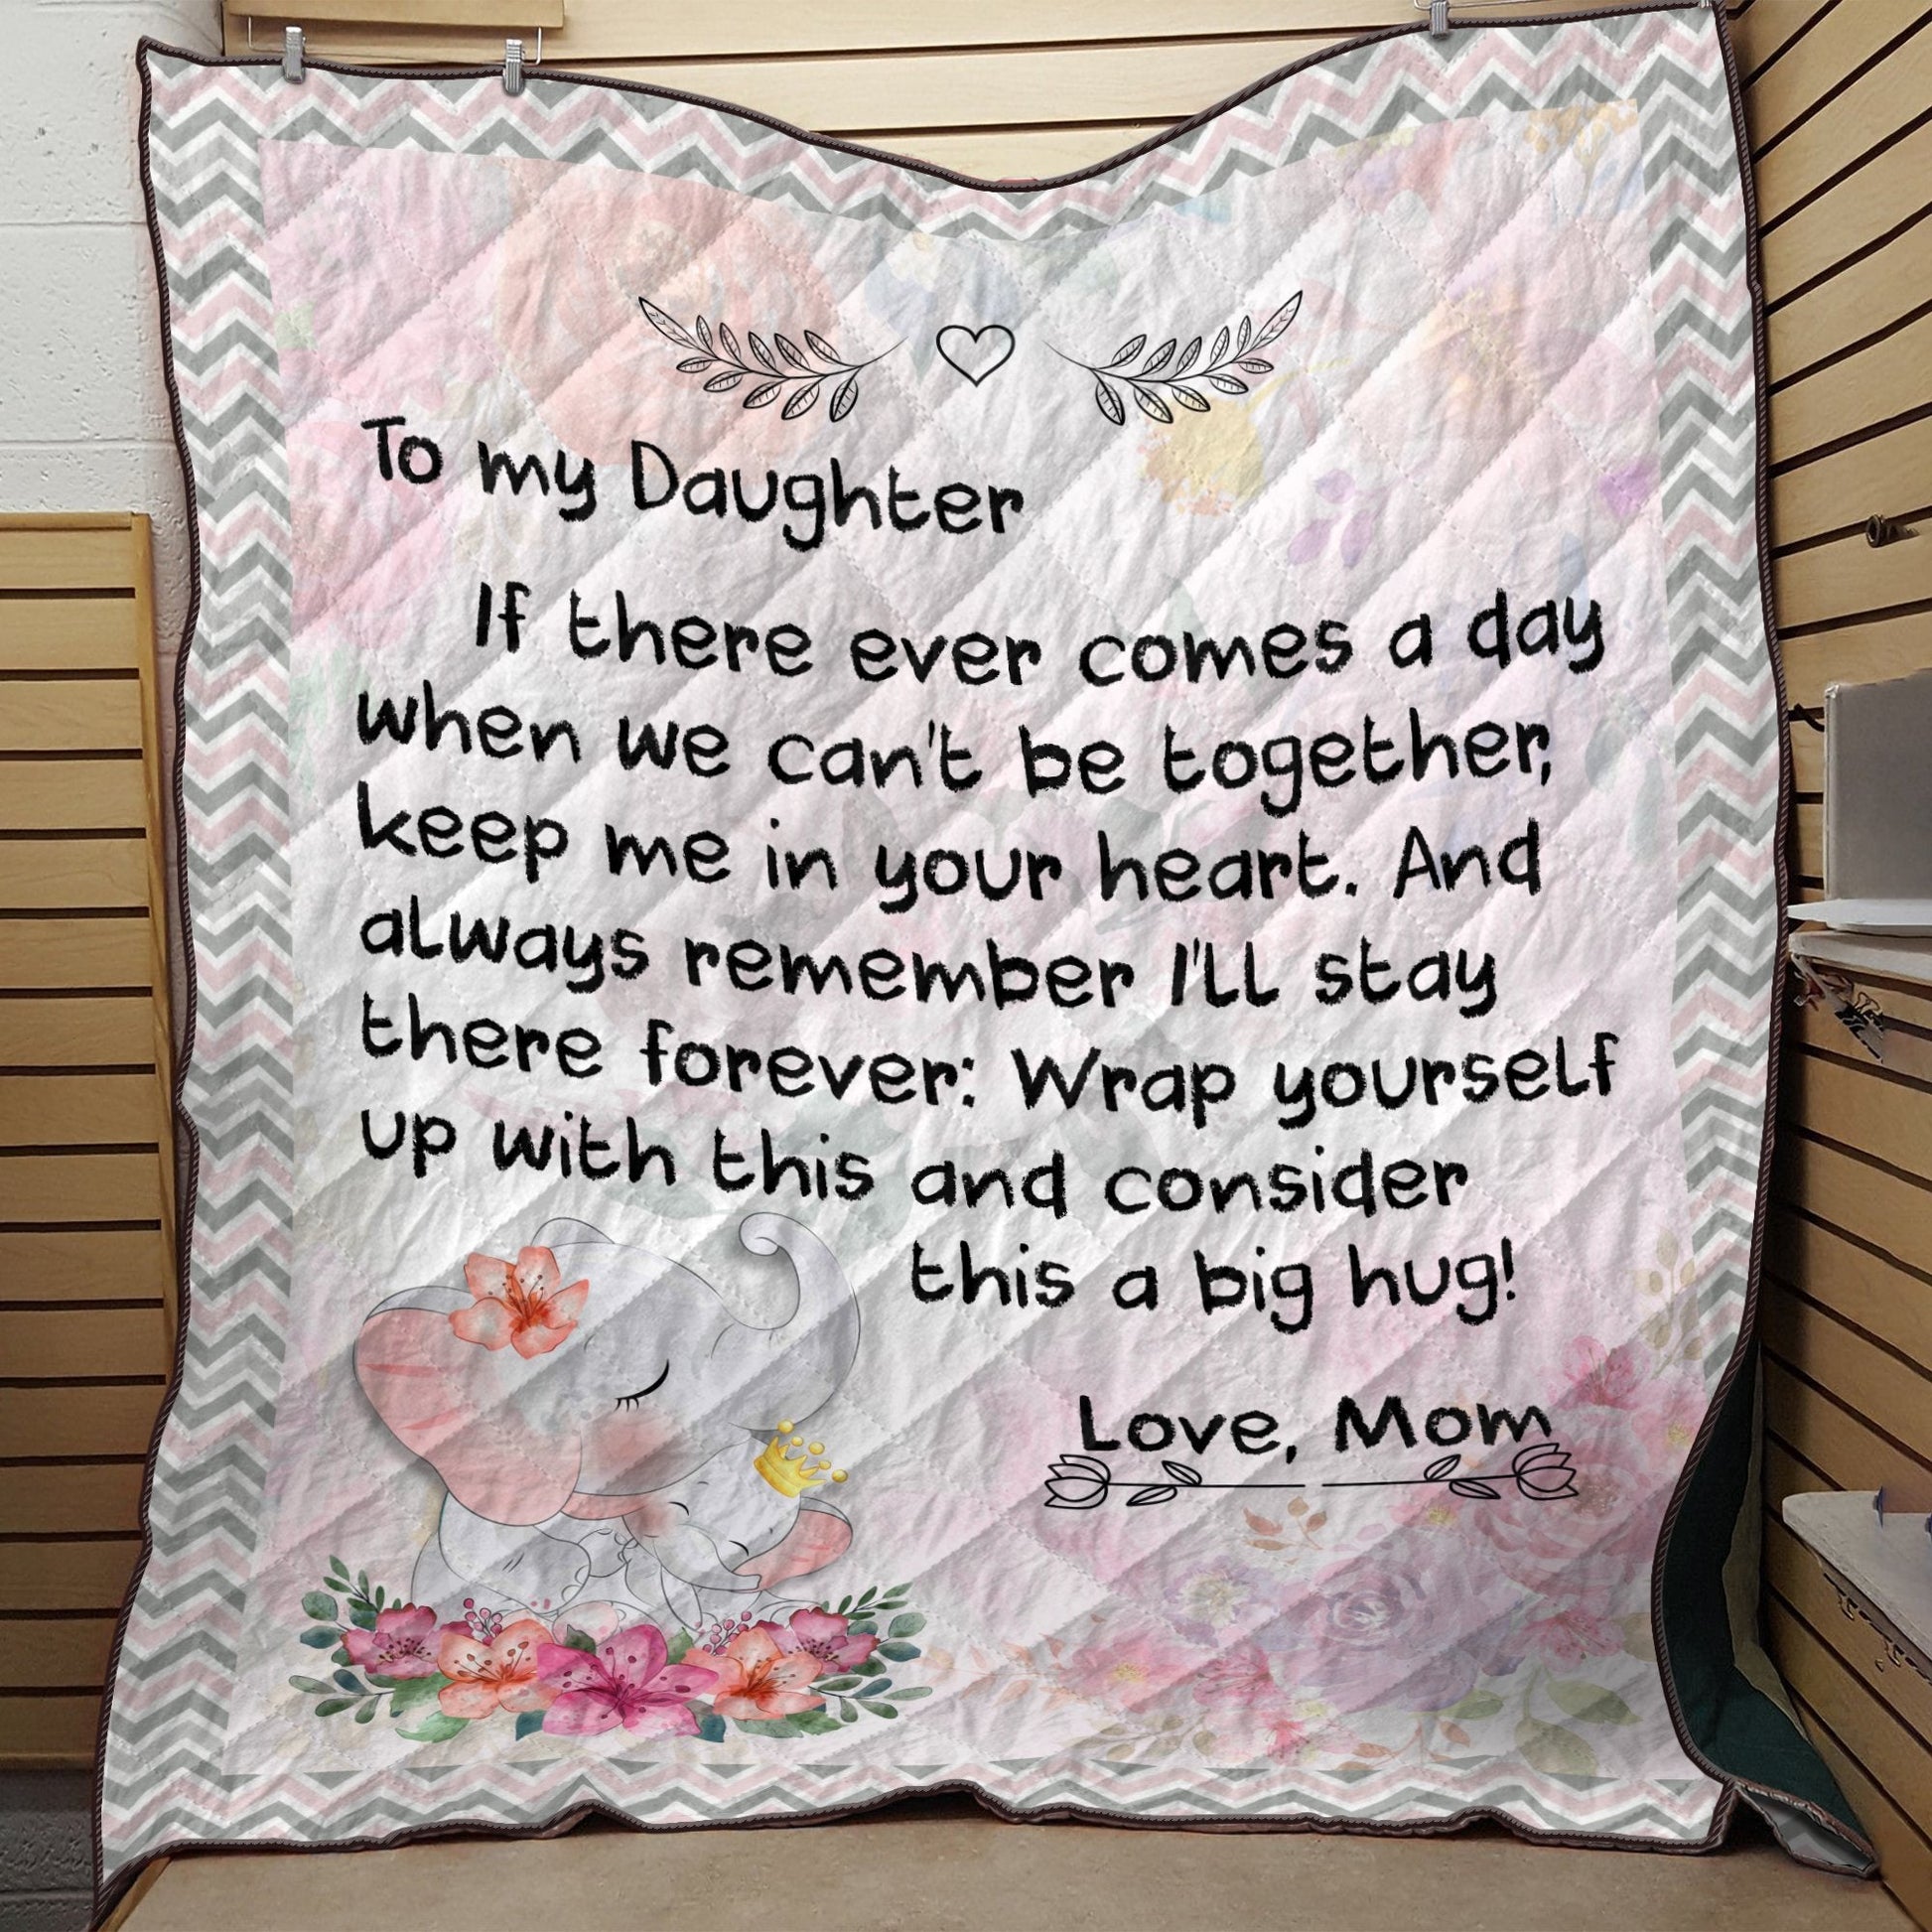 To my Daughter
If there ever comes a day
when we can't be together,
keep me in your heart. And
always remember I'll stay
there forever: Wrap yourself
up with this and consider
this a big hug!
Love, Mom